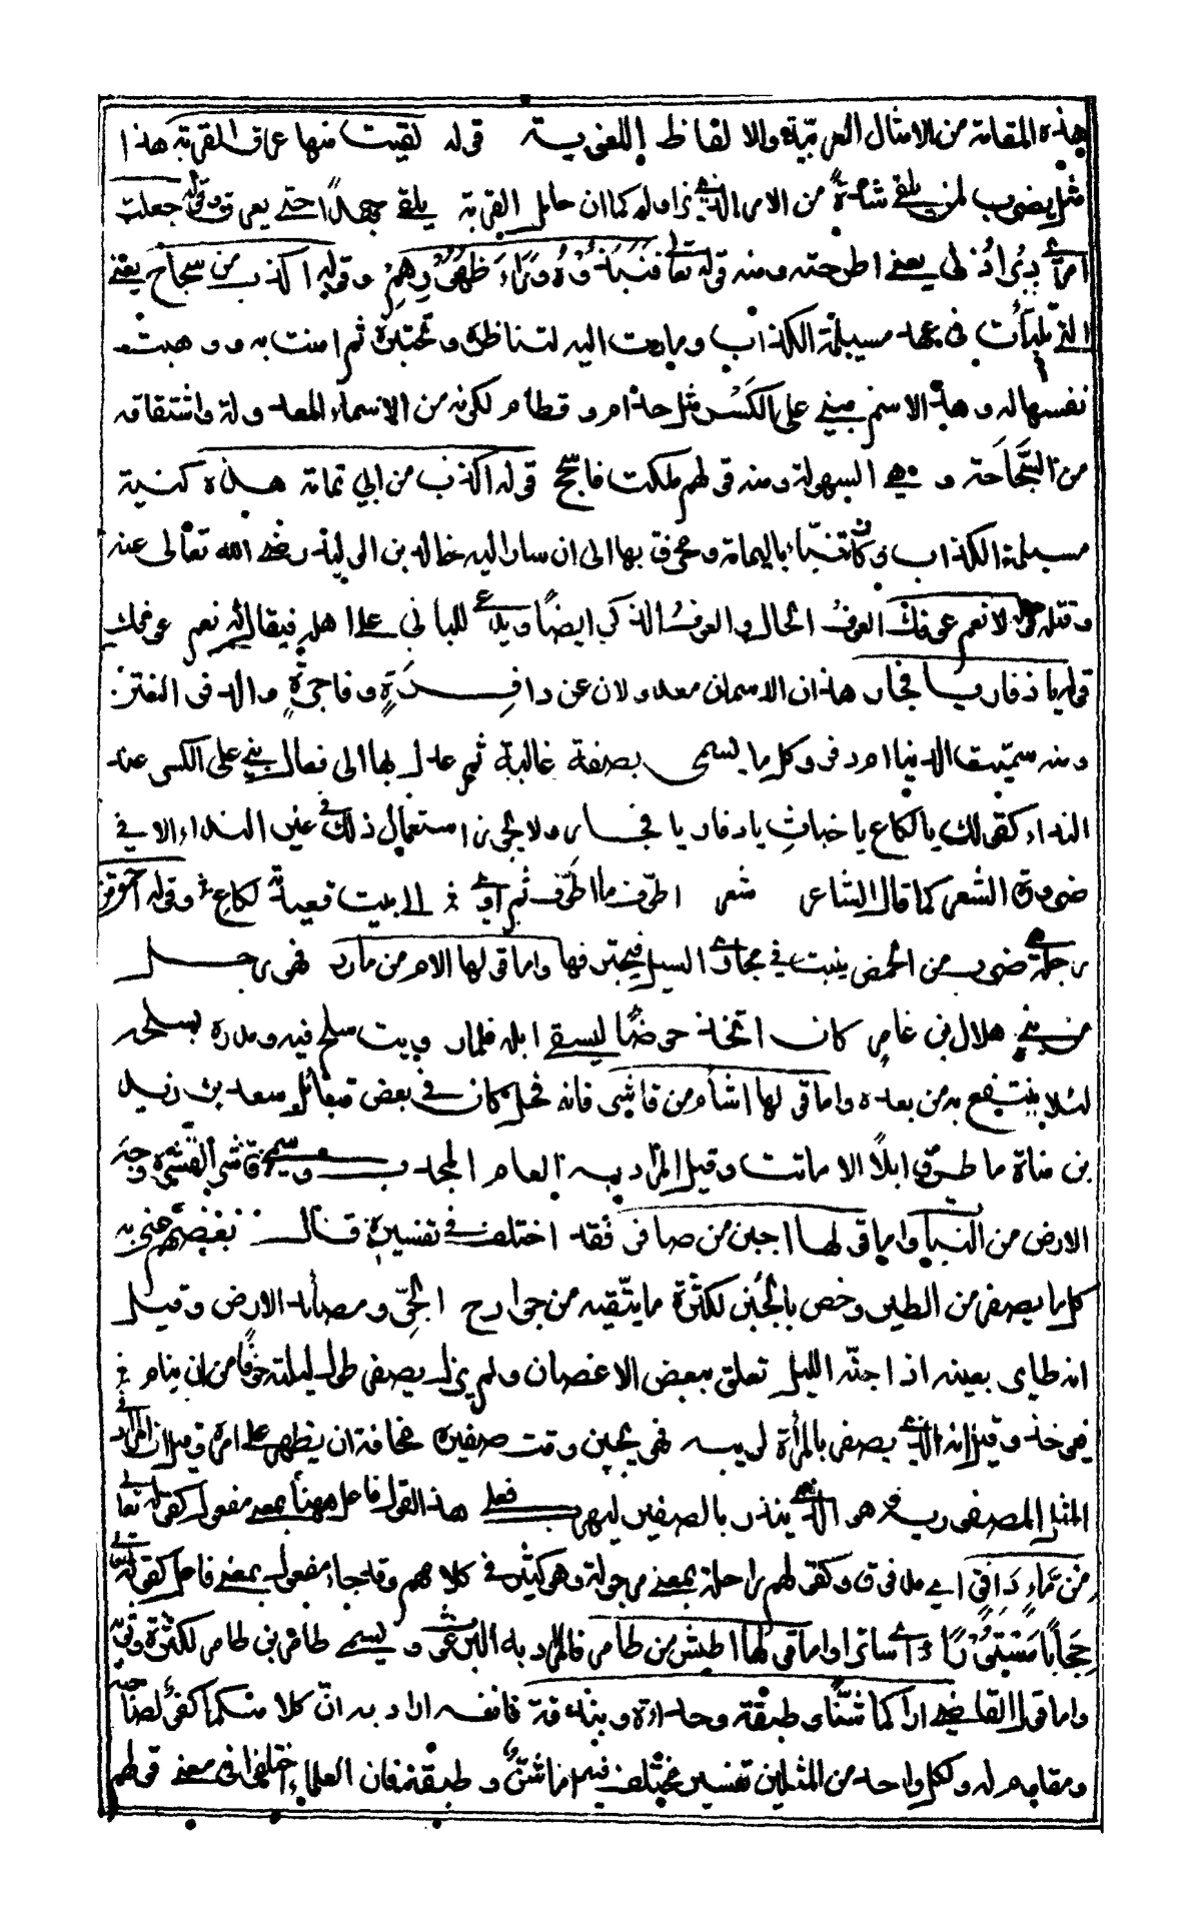 هذه المقامة من الامثال العربية والالفاظ اللغوية قوله لقيت منها عرق القربة هذا
مثل يضرب لمن يلقى شدة من الامر الذي زاوله كما ان حامل القربة يلقى جهدًا حتى يعرق وقوله جعلت
امرأتي دبر اذني يعني اطرحته ومنه قوله تعالى فنبذوه وراء ظهورهم وقوله اكذب من سجاح يعني
التي تنبأت في عهد مسيلمة الكذاب وسارت اليه لتناظره وتختبره ثم امنت به ووهبت
نفسها له وهذا الاسم مبني على الكسر مثل حذام وقطام لكونه من الاسماء المعدولة واشتقاقه
من السجاحة وهي السهولة ومنه قولهم ملكت فاسجح قوله اكذب من ابي ثمامة هذه كنية
مسيلمة الكذاب وكان تنبأ باليمامة ومخرق بها الى ان سار اليه خالد بن الوليد رضي الله تعالى عنه
وقتله قوله لا نعم عوفك العوف الحال والعوف الذكر ايضًا ويدعى للباني على اهله فيقال له نعم عوفك
قوله يا دفار يا فجار هذان الاسمان معدولان عن دافرة وفاجرة والدفر النتن
ومنه سميت الدنيا ام دفر وكل ما يسمى بصفة غالبة ثم عدل بها الى فعال بني على الكسر عند
النداء كقولك يا لكاع يا خباث يا دفار يا فجار ولا يجوز استعمال ذلك في غير النداء الا في
ضرورة الشعر كما قال الشاعر شعر اطوف ما اطوف ثم آوي الى بيت قعيدته لكاع وقوله احمق من
رجلة هي ضرب من الحمض ينبت في مجاري السيل فيجترفها واما قولها الام من مادر فهو رجل
من بني هلال بن عامر كان اتخذ حوضًا ليسقي ابله فلما رويت سلح فيه ومدره بسلحه
لئلا ينتفع به من بعده واما قولها اشأم من قاشر فانه فحل كان في بعض قبائل سعد بن زيد
بن مناة ما طرق ابلًا الا ماتت وقيل المراد به العام المجدب وسمي قاشر القشره وجه
الارض من النبات واما قولها اجبن من صافر فقد اختلف في تفسيره فقال بعضهم عني به
كل ما يصفر من الطير وخص بالجبن لكثرة ما يتقيه من جوارح الجو ومصائد الارض وقيل
انه طاير بعينه اذا جنه الليل تعلق ببعض الاغصان ولم يزل يصفر طول ليلته خوفًا من ان ينام
فيؤخذ وقيل انه الذي يصفر بالمرأة لريبة فهو يجبن وقت صفيره مخافة ان يظهر على امره وقيل ان المراد في
المثل المصفور به وهو الذي ينذر بالصفير ليهرب فعلى هذا القول فاعل ههنا بمعنى مفعول كقوله تعالى
من ماء دافق اي مدفوق وكقولهم راحلة بمعنى مرحولة وهو كثير في كلامهم وقد جاء مفعول بمعنى فاعل كقوله تعالى
حجابًا مستورًا اي ساترا واما قولها اطيش من طامر فالمراد به البرغوث ويسمى طامر بن طامر لكثرة وثبه
واما قول القاضي اراكما شنًّا وطبقة وحدأة وبندقة فانه اراد به ان كلا منكما كفؤ لصاحبه
ومقاوم له ولكل واحد من المثلين تفسير مختلف فيه اما شن وطبقة فان العلماء اختلفوا في معنى قولهم